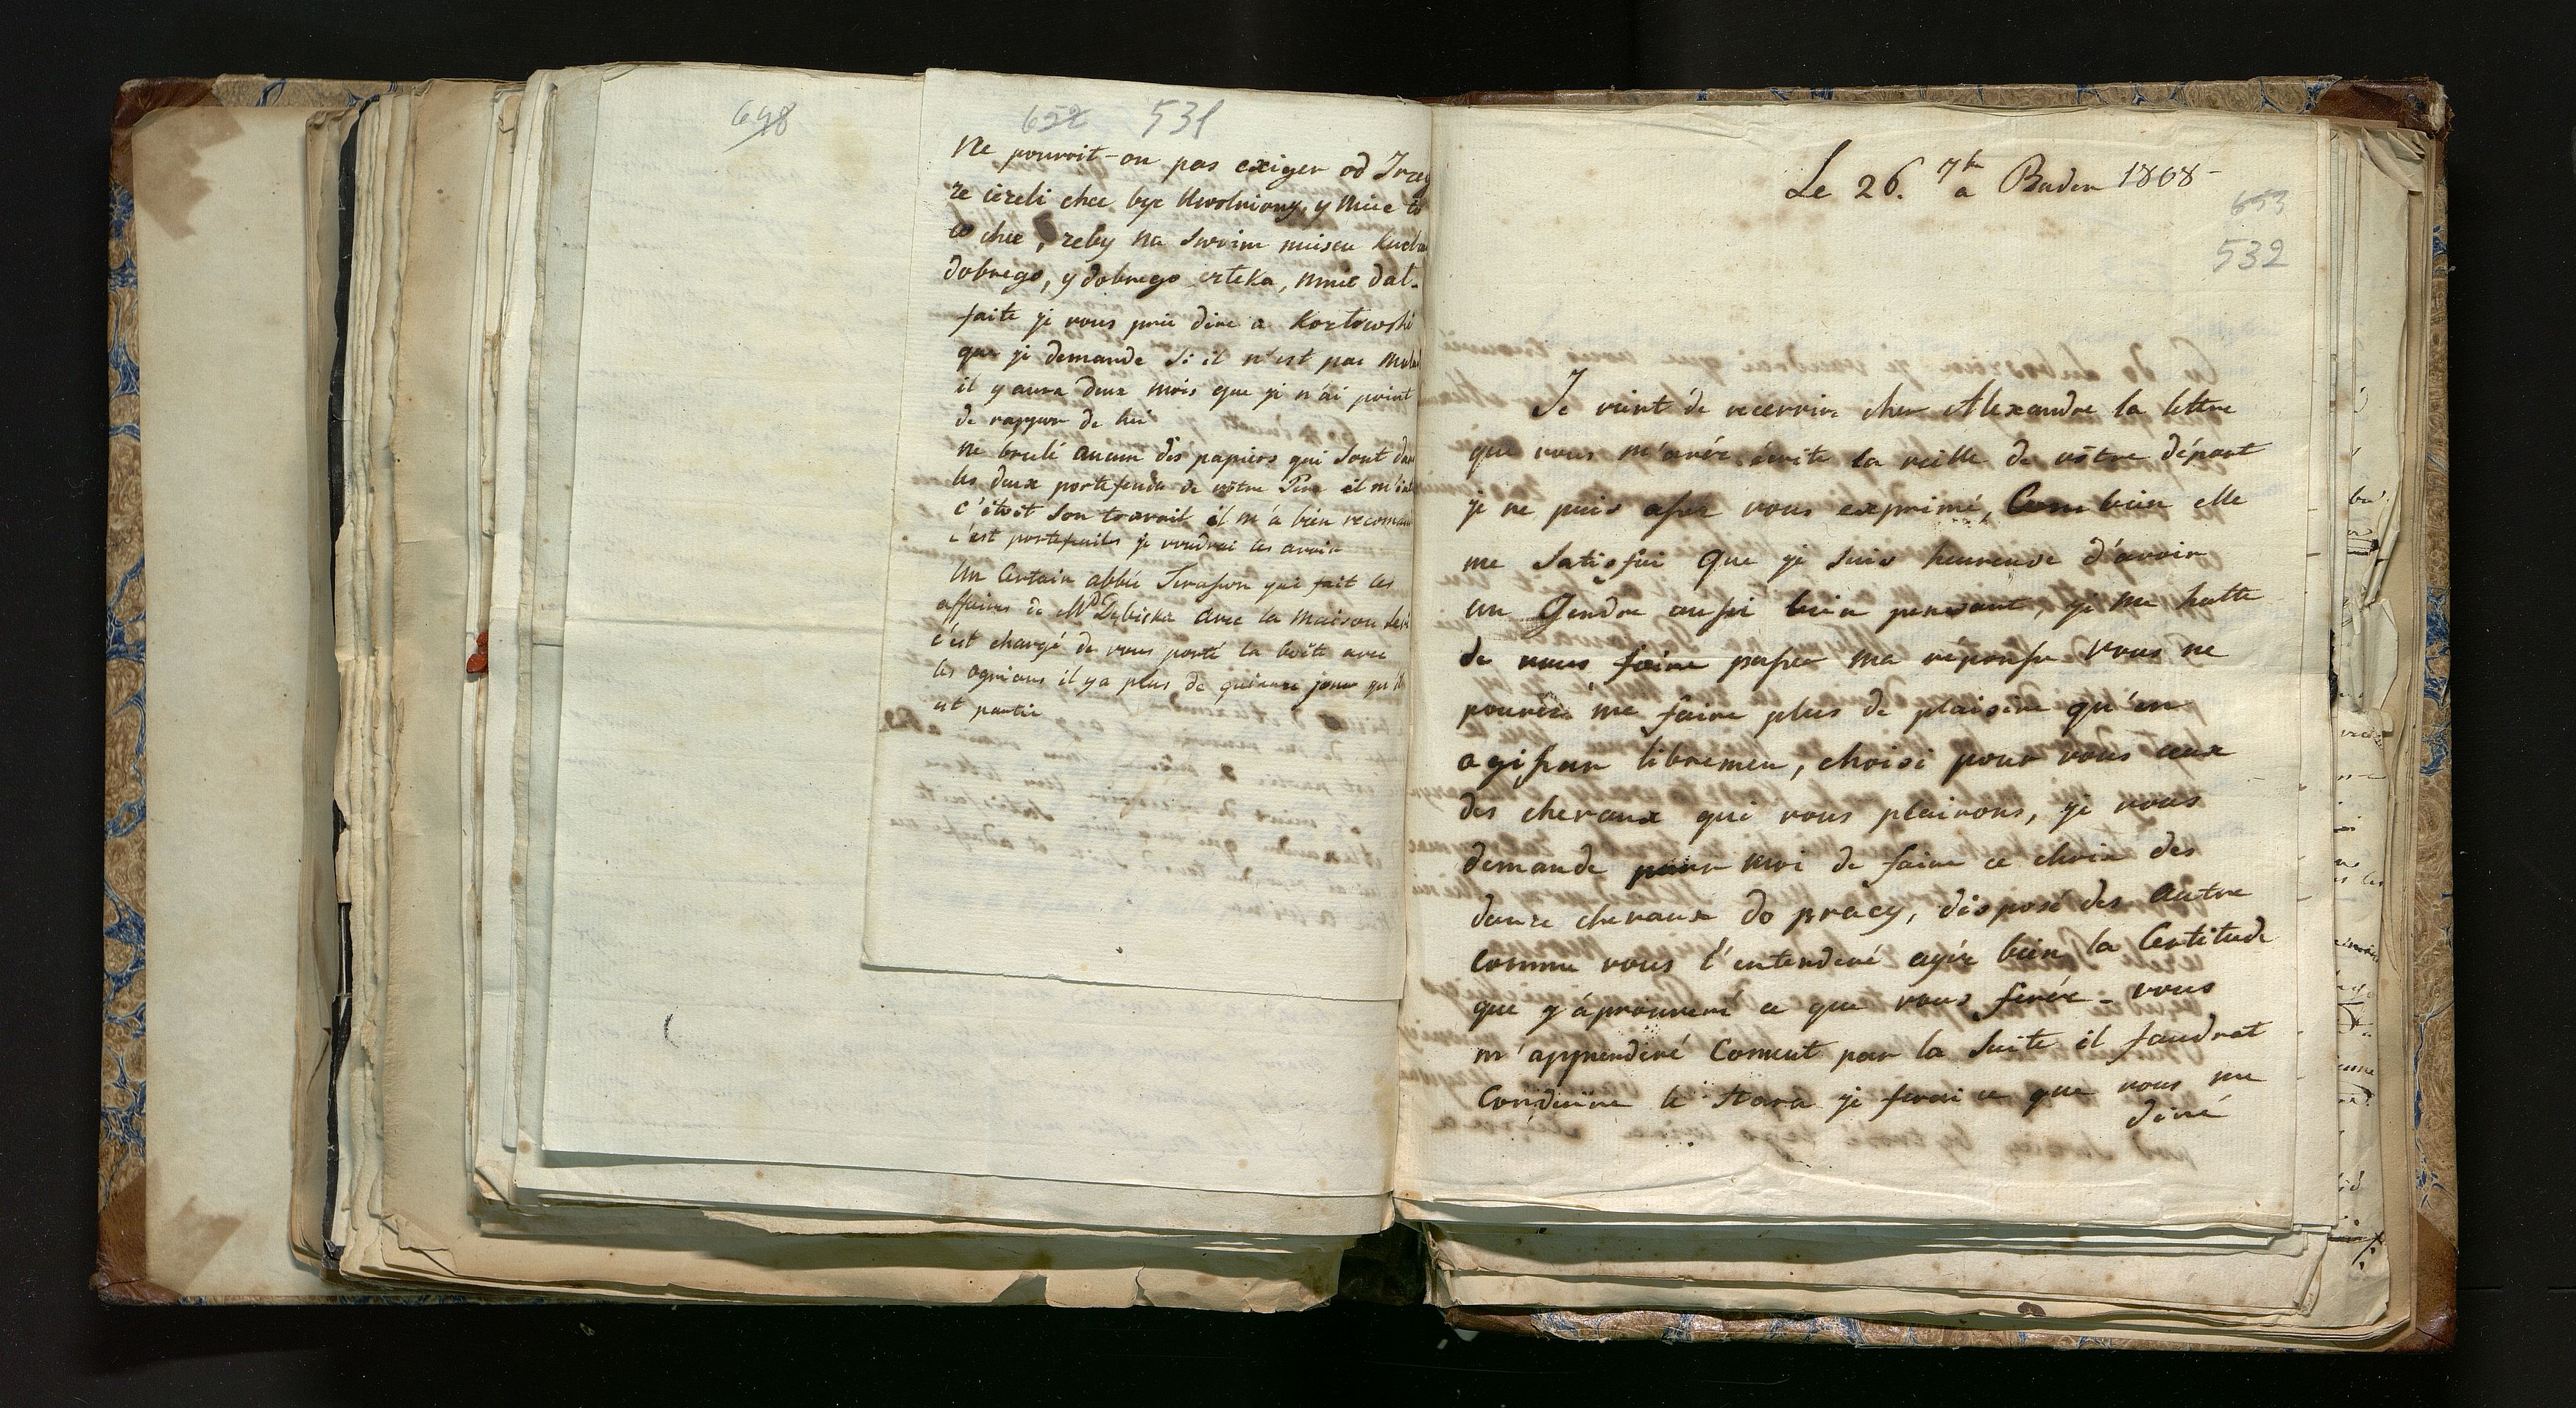 648
652 531
Ne pouroit-on pas exiger od
ze iezeli chce byc Uwolniony, y mnie to
to chce, zeby na swoim mieiscu
dobrego, y dobrego czleka, mnie dal.
faite je vous prie dire a Kozlowski
que je demande si il n'est pas
il y aura deux mois que je n'ai point
de rapport de lui
ne brulé aucun des papiers qui sont
les deux portefeuile de vôtre Pere il
c'étoit son travail il m'a bien
c'est portefeuiles je voudrai les avoir
Un Certain abbé qui fait les
affaires de Md Dębicka avec la maison
c'est chargé de vous porté la boëte avec
les agrions il y a plus de quinze jour
est partie
Le 26. 7bre a Baden 1808-
653
532
Je vient de recevoire cher Alexandre la lettre
que vous m'avéz écrite la veille de vôtre départ
je ne puis assez vous exprimé, Combien elle
me satisfai que je suis heureuse d'avoir
un Gendre aussi bien pensant, je me hatte
de vous faire passer ma réponse vous ne
pouvéz me faire plus de plaisire qu'en
agissan libremen, choisi pour vous ceux
des chevaux qui vous plairons, je vous
demande pour moi de faire ce choix des
douze chevaux do pracy, disposé des autre
comme vous l'entenderé ayéz bien la Certitude
que j'aprouverai ce que vous feréz - vous
m'apprenderé Coment par la suite il faudrat
Conduire le Stara je ferai ce que vous me
diré